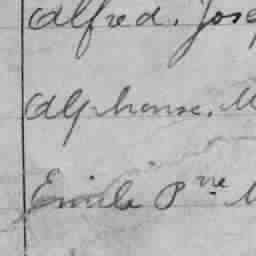 Alfred. Jose
Alphonse. M
Emile Pne M